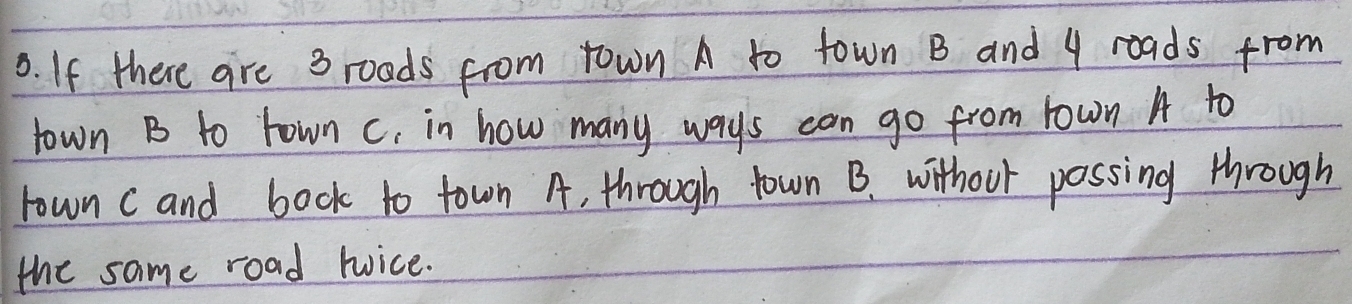 3. If there are 3 roads from town A to town B and 4 roads from
town B to town C, in how many ways can go from town A to
town C and back to town A, through town B, without passing through
the same road twice.